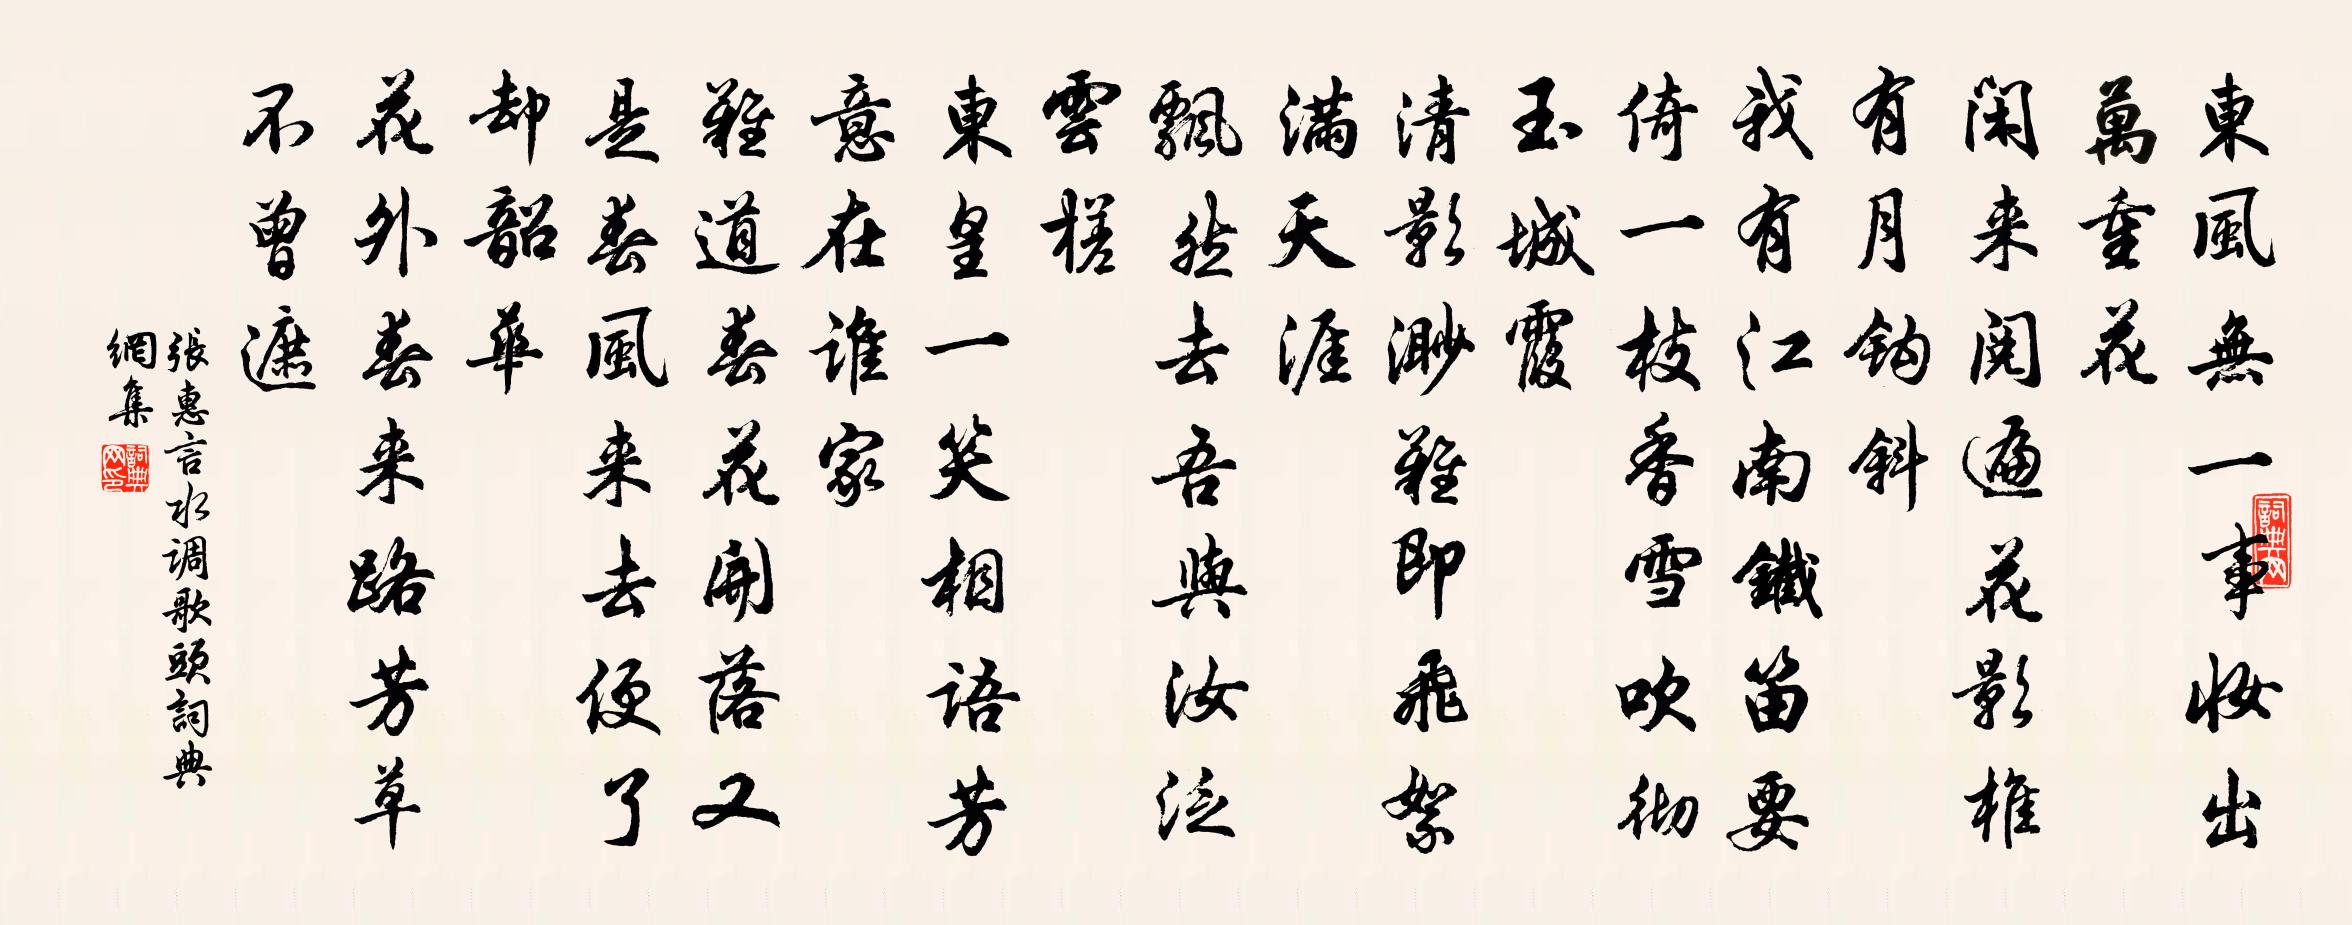 東風無一事妝出
萬重花
閑来閱遍花影惟
有月鈎斜
我有江南鐵笛要
倚一枝香雪吹彻
玉城霞
清影渺難即飛絮
滿天涯
飄然去吾與汝泛
雲槎
東皇一笑相語芳
意在誰家
難道春花開落又
是春風来去便了
却韶華
花外春来路芳草
不曾遮
張惠言水调歌頭詞典
網集
詞典网
詞典网印